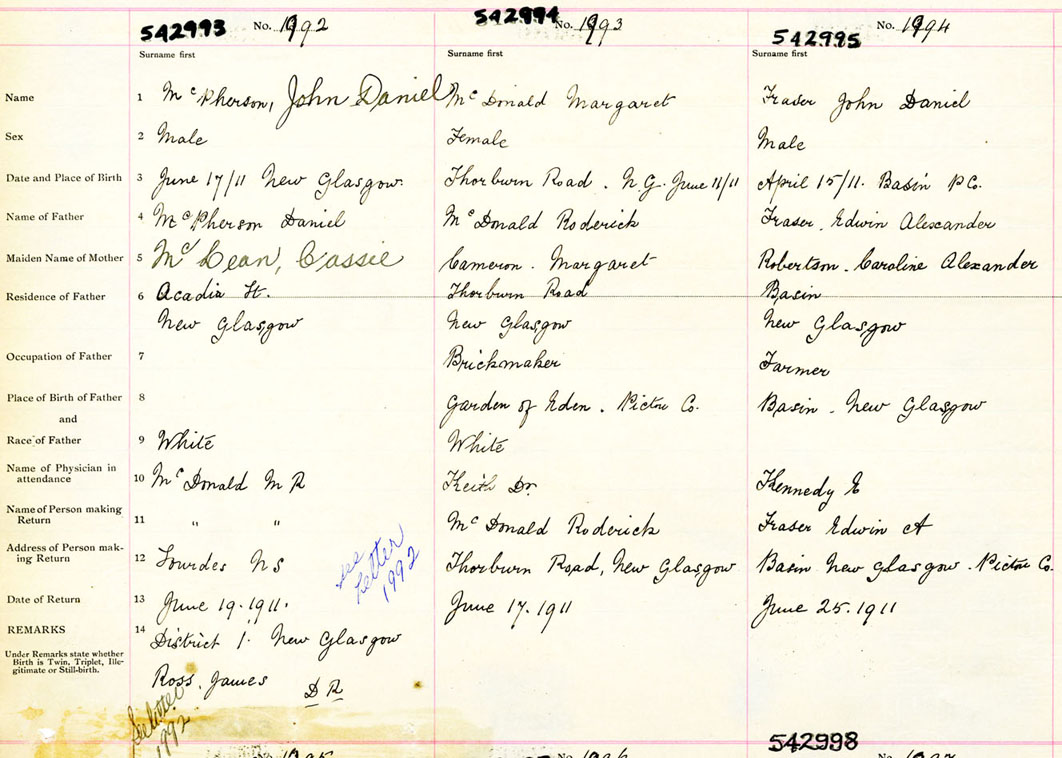 542993 No. 1992
542994 No. 1993
542995 No. 1994
Surname first
Surname first
Surname first
Name 1 McPherson, John Daniel McDonald Margaret Fraser John Daniel
Sex 2 Male Female Male
Date and Place of Birth 3 June 17/11 New Glasgow. Thorburn Road. N.G. June 11/11 April 15/11. Basin P Co.
Name of Father 4 McPherson Daniel McDonald Roderick Fraser, Edwin Alexander
Maiden Name of Mother 5 McLean, Cassie Cameron. Margaret Robertson. Caroline Alexander
Residence of Father 6 Acadia St. Thorburn Road Basin
New Glasgow New Glasgow New Glasgow
Occupation of Father 7 Brickmaker Farmer
Place of Birth of Father 8 Garden of Eden. Pictou Co. Basin. New Glasgow
and
Race of Father 9 White White
Name of Physician in
attendance 10 McDonald M R Keith Dr. Kennedy E
Name of Person making
Return 11 " " McDonald Roderick Fraser Edwin A
Address of Person mak-
ing Return 12 Lourdes N S Thorburn Road, New Glasgow Basin New Glasgow. Pictou Co.
see
Letter
1992
Date of Return 13 June 19. 1911. June 17. 1911 June 25. 1911
REMARKS 14 District 1. New Glasgow
Under Remarks state whether
Birth is Twin, Triplet, Ille-
gitimate or Still-birth.
Ross, James D R
See letter
1992
542998
No. 1995
1996
No. 1997